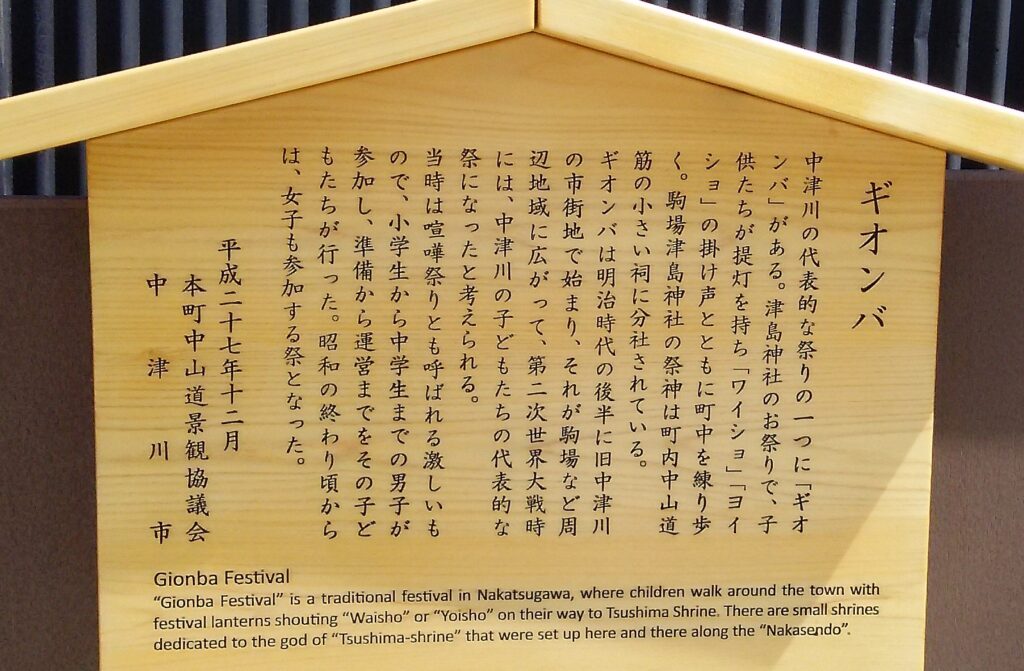 ギオンバ
中津川の代表的な祭りの一つに「ギオ
ンバ」がある。津島神社のお祭りで、子
供たちが提灯を持ち「ワイショ」「ヨイ
ショ」の掛け声とともに町中を練り歩
く。駒場津島神社の祭神は町内中山道
筋の小さい祠に分社されている。
ギオンバは明治時代の後半に旧中津川
の市街地で始まり、それが駒場など周
辺地域に広がって、第二次世界大戦時
には、中津川の子どもたちの代表的な
祭になったと考えられる。
当時は喧嘩祭りとも呼ばれる激しいも
ので、小学生から中学生までの男子が
参加し、準備から運営までをその子ど
もたちが行った。昭和の終わり頃から
は、女子も参加する祭となった。
平成二十七年十二月
本町中山道景観協議会
中津川市
Gionba Festival
“Gionba Festival” is a traditional festival in Nakatsugawa, where children walk around the town with
festival lanterns shouting “Waisho” or “Yoisho” on their way to Tsushima Shrine. There are small shrines
dedicated to the god of “Tsushima-shrine” that were set up here and there along the “Nakasendo”.